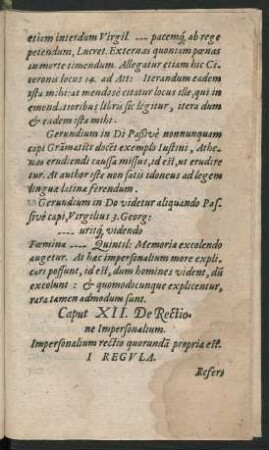 etiam interdum Virgil --- pacemq́, ab rege
petendum, Lucret. Externas quoniam pœnas
in morte timendum. Allegatur etiam hic Ci-
ceronis locus 14. ad Att: Iterandum eadem
ista mihi: at mendosè citatur locus ille, qui in
emendatioribus libris sic legitur, itera dum
& eadem ista mihi.
Gerundium in Di Paßivè nonnunquam
capi Grãmatici docēt exemplo Iustini, Athe-
nas erudiendi caussa missus, id est, ut erudire
tur. At author iste non satis idoneus ad legem
linguæ latinæ ferendum.
Gerundium in Do videtur aliquando Pas-
sivè capi, Virgilius 3. Georg:
---- uritq́, videndo
Fœmina ---- Quintil: Memoria excolendo
augetur. At hæc impersonalium more expli-
cari possunt, id est, dum homines vident, dũ
excolunt: & quomodocunque explicentur,
rara tamen admodum sunt.
Caput XII. De Rectio-
ne Impersonalium.
Impersonalium rectio quorundã propria est.
I REGVLA.
Refert